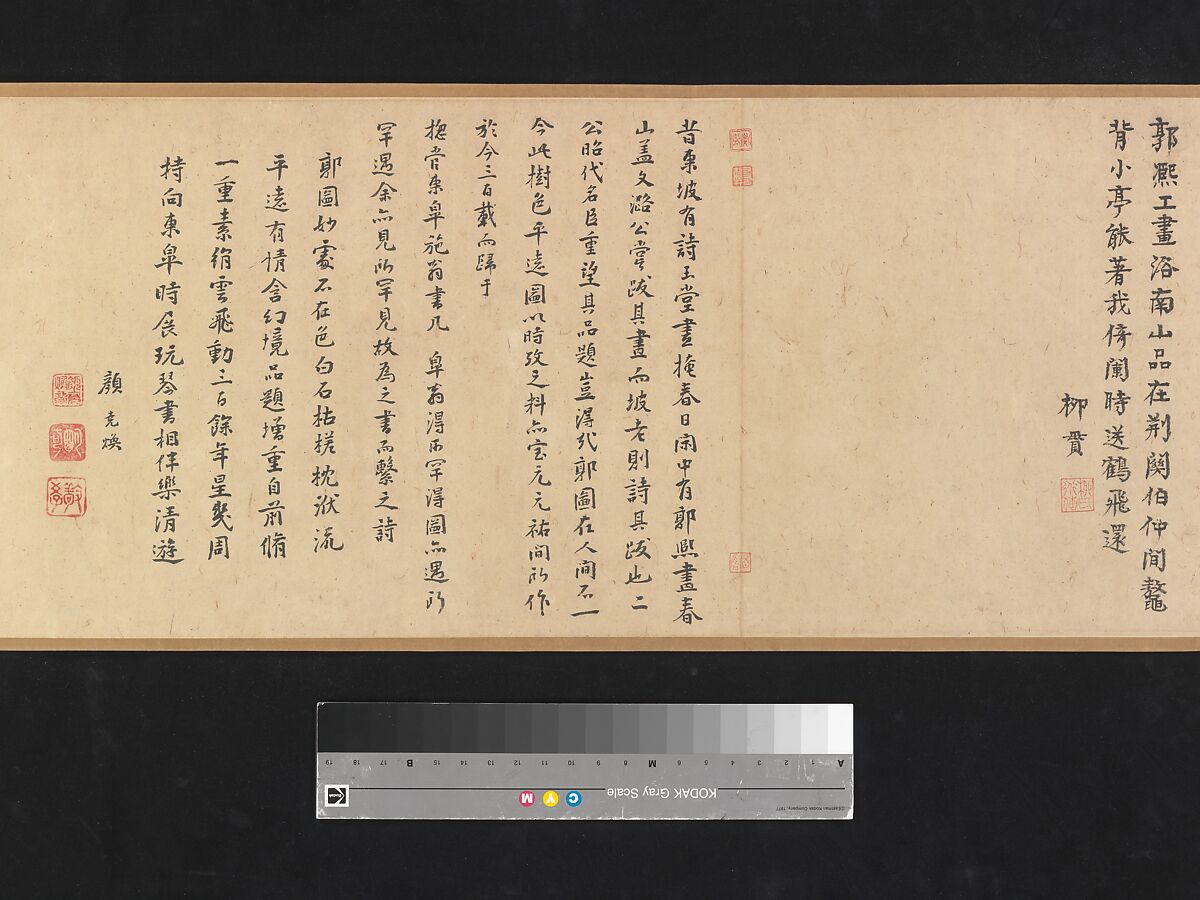 郭熙工畫洛南山品在荆関伯仲間鼇
背小亭能著我倚闌時送鶴飛還
柳貫
昔東坡有詩玉堂晝掩春日閑中有郭熙畫春
山盖文潞公嘗跋其畫而坡老則詩其跋也二
公昭代名臣重望其品題豈得哉郭圖在人間不一
今此樹色平遠圖以時攷之料亦宝元元祐間所作
於今三百載而歸于
揔管東皐施翁書几 皐翁得所罕得圖亦遇所
罕遇余亦見所罕見故為之書而繫之詩
郭圖妙處不在色白石枯槎枕洑流
平遠有情含幻境品題增重自前脩
一重素絹雲飛動三百餘年星幾周
持向東皐時展玩琴書相伴樂清遊
顔克煥
KODAK Gray Scale
C Y M
A 1 2 3 4 5 6 M 8 9 10 11 12 13 14 15 B 17 18 19
©Eastman Kodak Company, 1977
Kodak